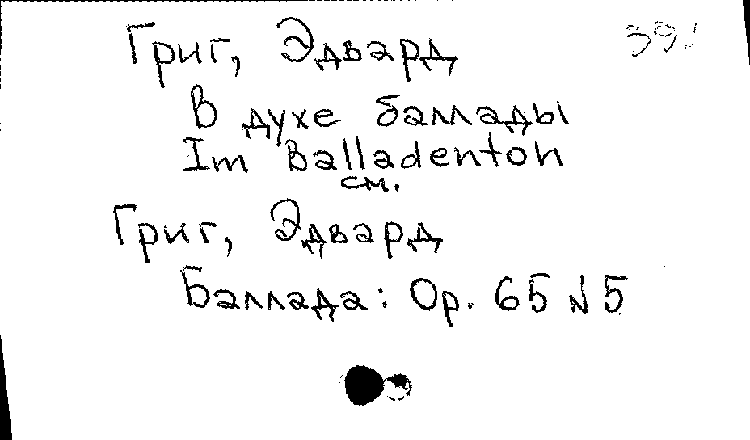 Григ, Эдвард
В духе баллады
Im Balladenton
см.
Григ, Эдвард
Баллада: Op. 65 № 5